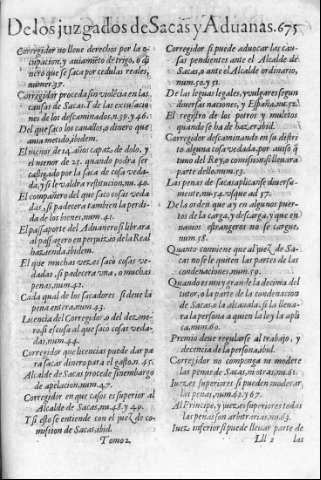 De los juzgados de Sacas y Aduanas. 675
Corregidor no lleve derechos por la o-
cupacion, y aviamiẽto de trigo, o di
nero que se saca por cedulas reales,
numer. 37.
Corregidor proceda sin violẽcia en las
causas de Sacas. Y de las excusacio-
nes de los descaminados, n. 39. y 46.
Del que saco los cauallos, o dinero que
auia metido, ibidem.
El menor de 14. años capaz de dolo, y
el menor de 25. quando podra ser
castigado por la saca de cosa veda-
da, y si le valdra restitucion, nu. 40.
El compañero del que saco cosas veda
das, si padecera tambien la perdi-
da de los bienes, num. 41.
El passaporte del Aduanero si librara
al passagero en perjuyzio de la Real
hazienda, ibidem.
El que muchas vezes saco cosas ve-
dadas, si padecera vna, o muchas
penas, num. 42.
Cada qual de los sacadores si deue la
pena entera, num. 43.
Licencia del Corregidor, o del dezme-
ro, si escusa al que saco cosas veda-
das, num. 44.
Corregidor que licencias puede dar pa
ra sacar dinero para el gasto, n. 45.
Alcalde de Sacas procede sin embargo
de apelacion, num. 47.
Corregidor en que casos es superior al
Alcalde de Sacas, nu. 48. y 49.
Y si esto se entiende con el juez de co-
mission de Sacas, ibid.
Tomo 2.
Corregidor si puede aduocar las cau-
sas pendientes ante el Alcalde de
Sacas, o ante el Alcalde ordinario,
num. 50. y 51.
De las leguas legales, y vulgares segun
diuersas naciones, y España, nu. 52.
El registro de los potros y muletos
quando se ha de hazer, ibid.
Corregidor descaminando en su distri
to alguna cosa vedada, por auiso q̃
tuuo del Rey, o comission, si lleuara
parte dello, num. 53.
Las penas de sacas aplicanse diuersa-
mente, nu. 54. vsque ad 57.
De la orden que ay en algunos puer-
tos de la carga, y descarga, y que en
nauios estrangeros no se cargue,
num. 58.
Quanto conuiene que al juez de Sa-
cas no se le quiten las partes de las
condenaciones, num. 59.
Quando es muy grande la decima del
tutor, o la parte de la condenacion
de Sacas o la alcauala, si la lleua-
ra la persona a quien la ley la apli
ca, num. 60.
Premio deue regularse al trabajo, y
decencia de la persona, ibid.
Corregidor no componga ni modere
las penas de Sacas, ni otras, nu. 61.
Iuezes superiores si pueden moderar
las penas, num. 62. y 67.
Al Principe, y juezes superiores todas
las penas son arbitrarias, nu. 63.
Iuez inferior si puede lleuar parte de
Lll 2 las